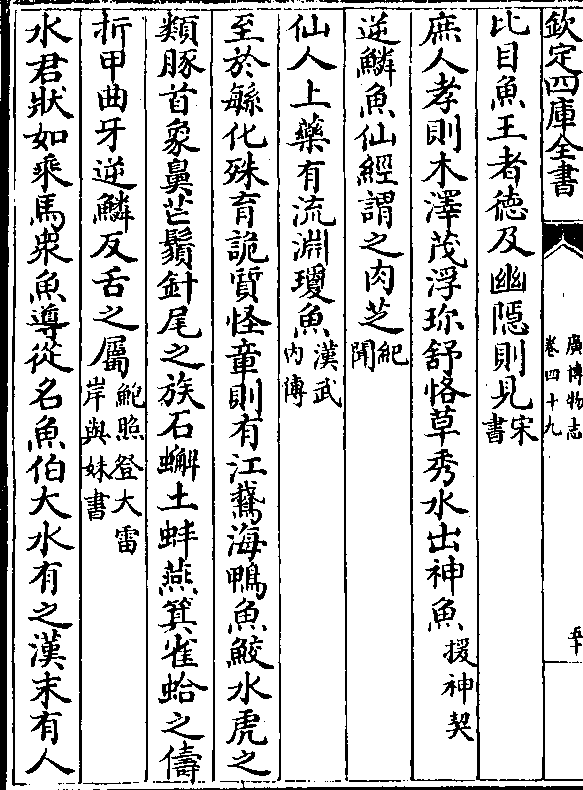 欽定四庫全書
廣博物志
卷四十九
五十
比目魚王者德及幽隱則見宋書
庶人孝則木澤茂浮珍舒恪草秀水出神魚援神契
逆鱗魚仙經謂之肉芝紀聞
仙人上藥有流淵瓊魚漢武內傳
至於繁化殊育詭質怪章則有江鵞海鴨魚鮫水虎之
類豚首象鼻芒鬚針尾之族石蠏土蚌燕箕雀蛤之儔
折甲曲牙逆鱗反舌之屬鮑照登大雷岸與妹書
水君狀如乘馬衆魚導從名魚伯大水有之漢末有人